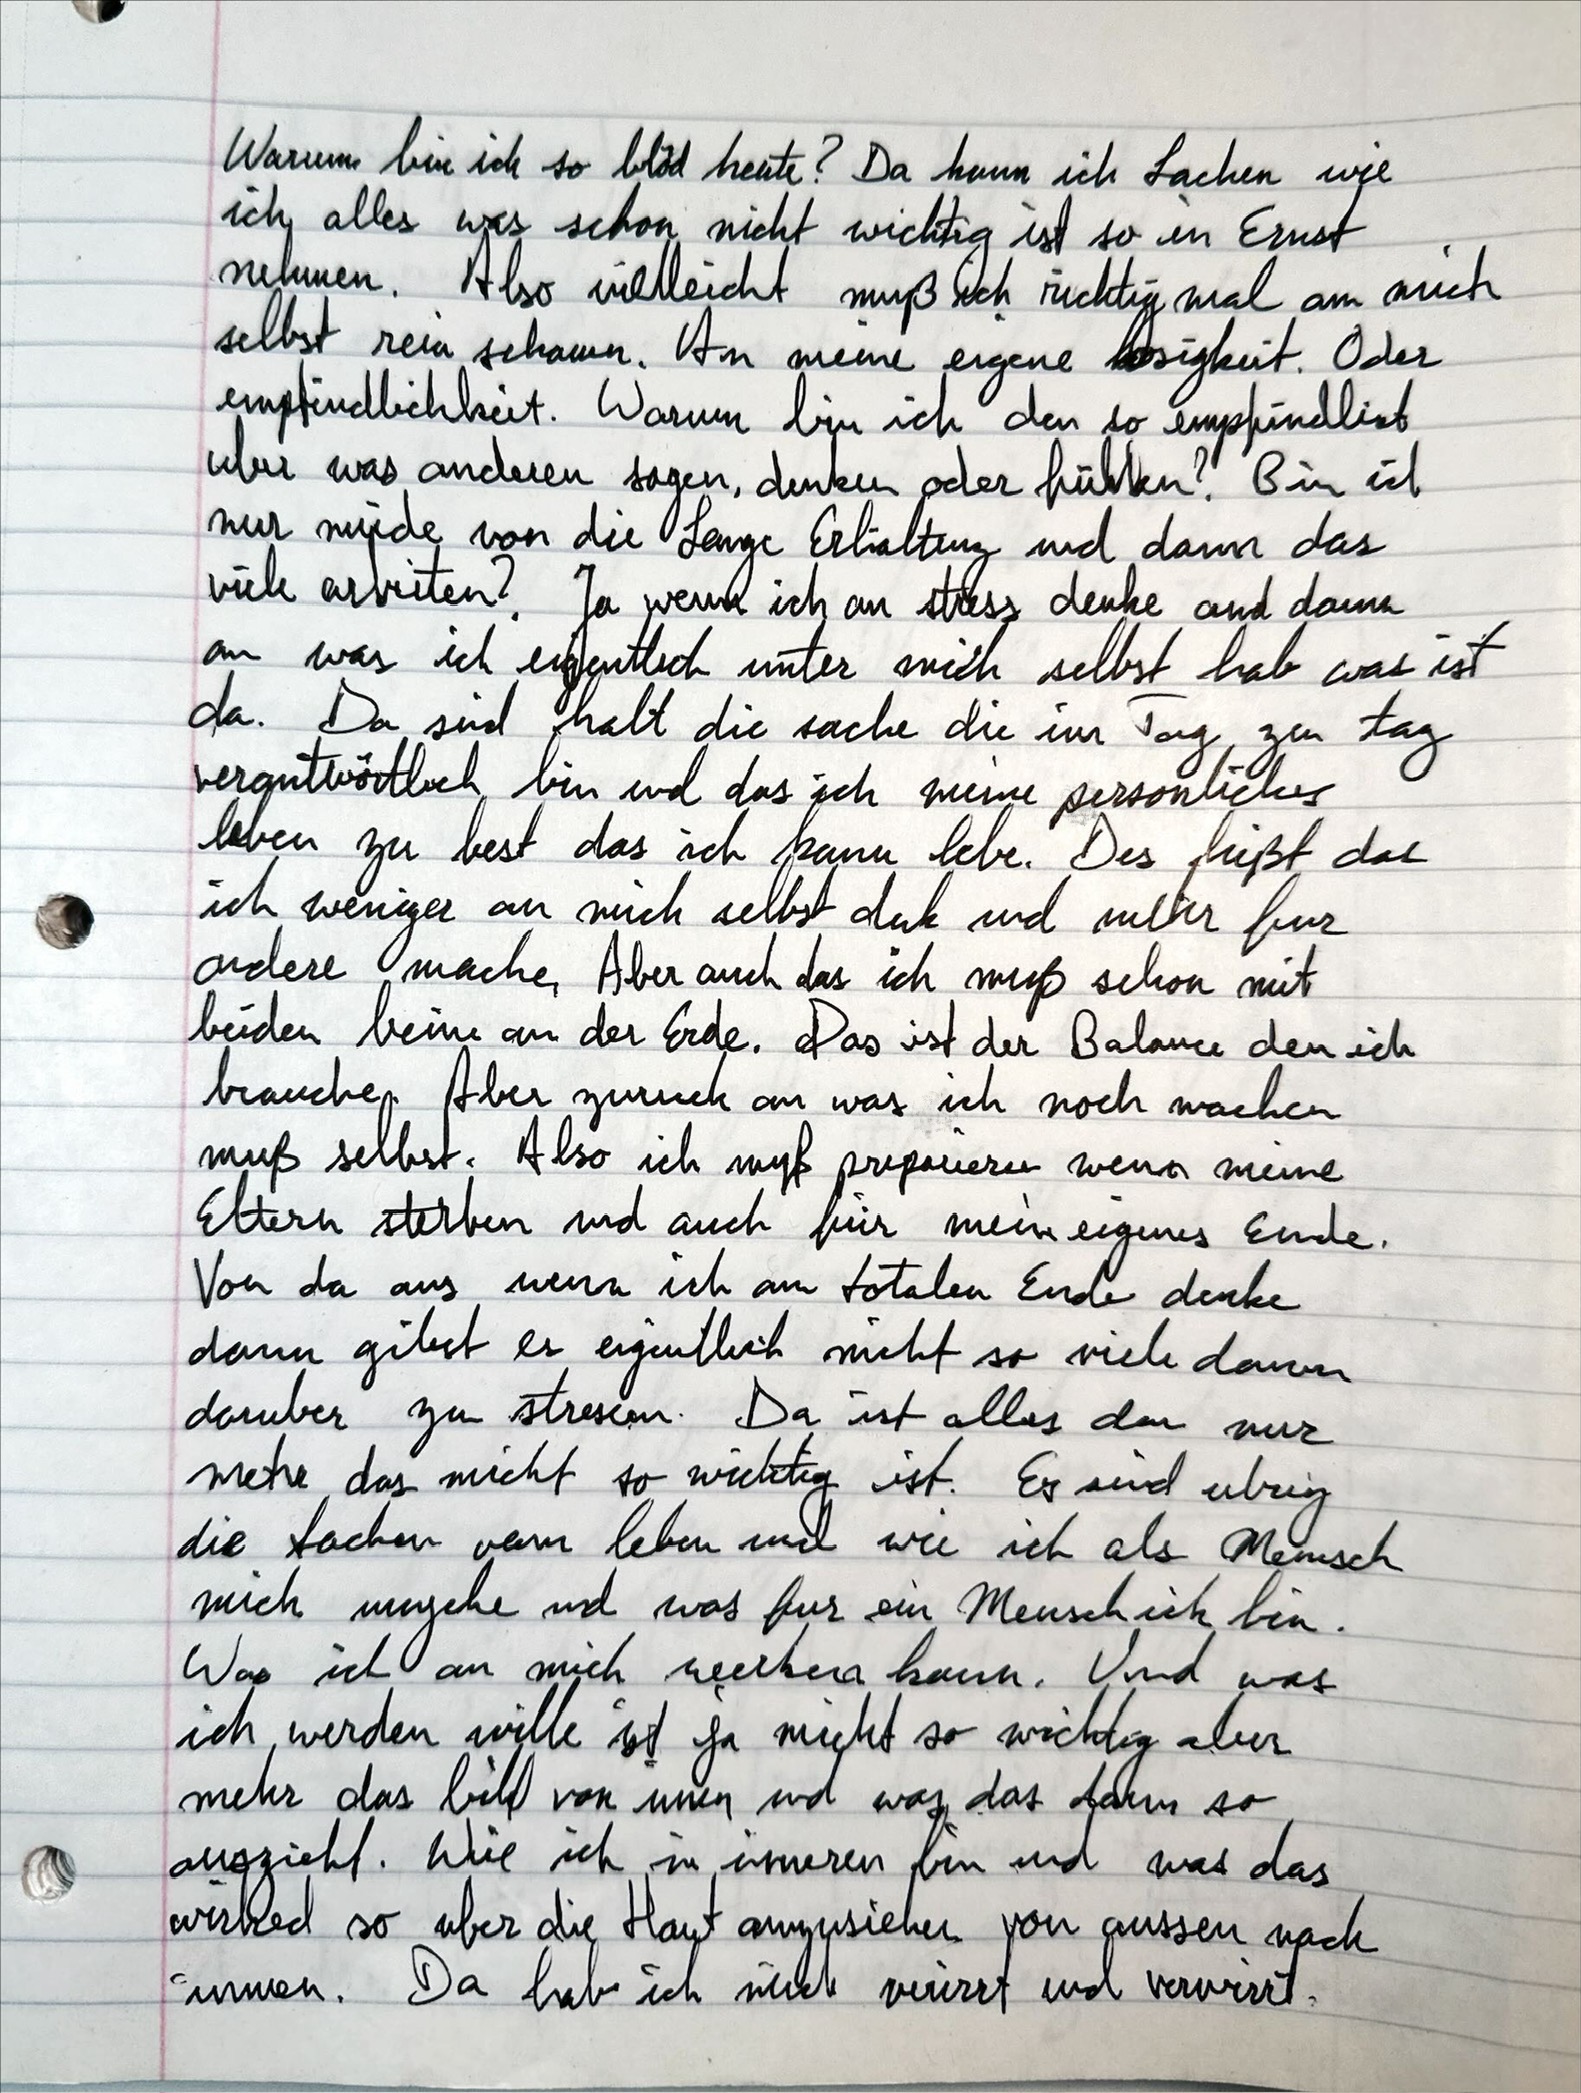 Warum bin ich so blöd heute? Da kann ich Lachen wie
ich alles was schon nicht wichtig ist so in Ernst
nehmen. Also villleicht muß ich richtig mal am mich
selbst rein schauen. An meine eigene losigkeit. Oder
empfindlichkeit. Warum bin ich den so empfindlict
uber was anderen sagen, denken oder fühlen? Bin ich
nur müde von die Lange Erhaltung und dann das
viele arbeiten? Ja wenn ich an stress denke and dann
an was ich eigentlich unter mich selbst hab was ist
da. Da sind halt die sache die im Tag zu tag
verantwörtlich bin und das ich meine personliches
leben zu best das ich kann lebe. Des heißt das
ich weniger an mich selbst denk und mehr fur
andere mache. Aber auch das ich muß schon mit
beiden beine an der Erde. Das ist der Balance den ich
brauche. Aber zuruck an was ich noch machen
muß selbst. Also ich muß preparieren wenn meine
Eltern sterben und auch für mein eigenes Ende.
Von da aus wenn ich am totalen Ende denke
dann gibet es eigentlich nicht so viele dann
daruber zu stressen. Da ist alles dan nur
mehr das nicht so wichtig ist. Es sind ubrig
die Sachen vom leben und wie ich als Mensch
mich umgehe und was fur ein Mensch ich bin.
Was ich an mich werken kann. Und was
ich werden wille ist ja nicht so wichtig aber
mehr das bild von innen und was das dann so
auszieht. Wie ich in inneren bin und was das
wirked so uber die Haut anzusiehen von aussen nach
innen. Da hab ich mich verirrt und verwirrt.